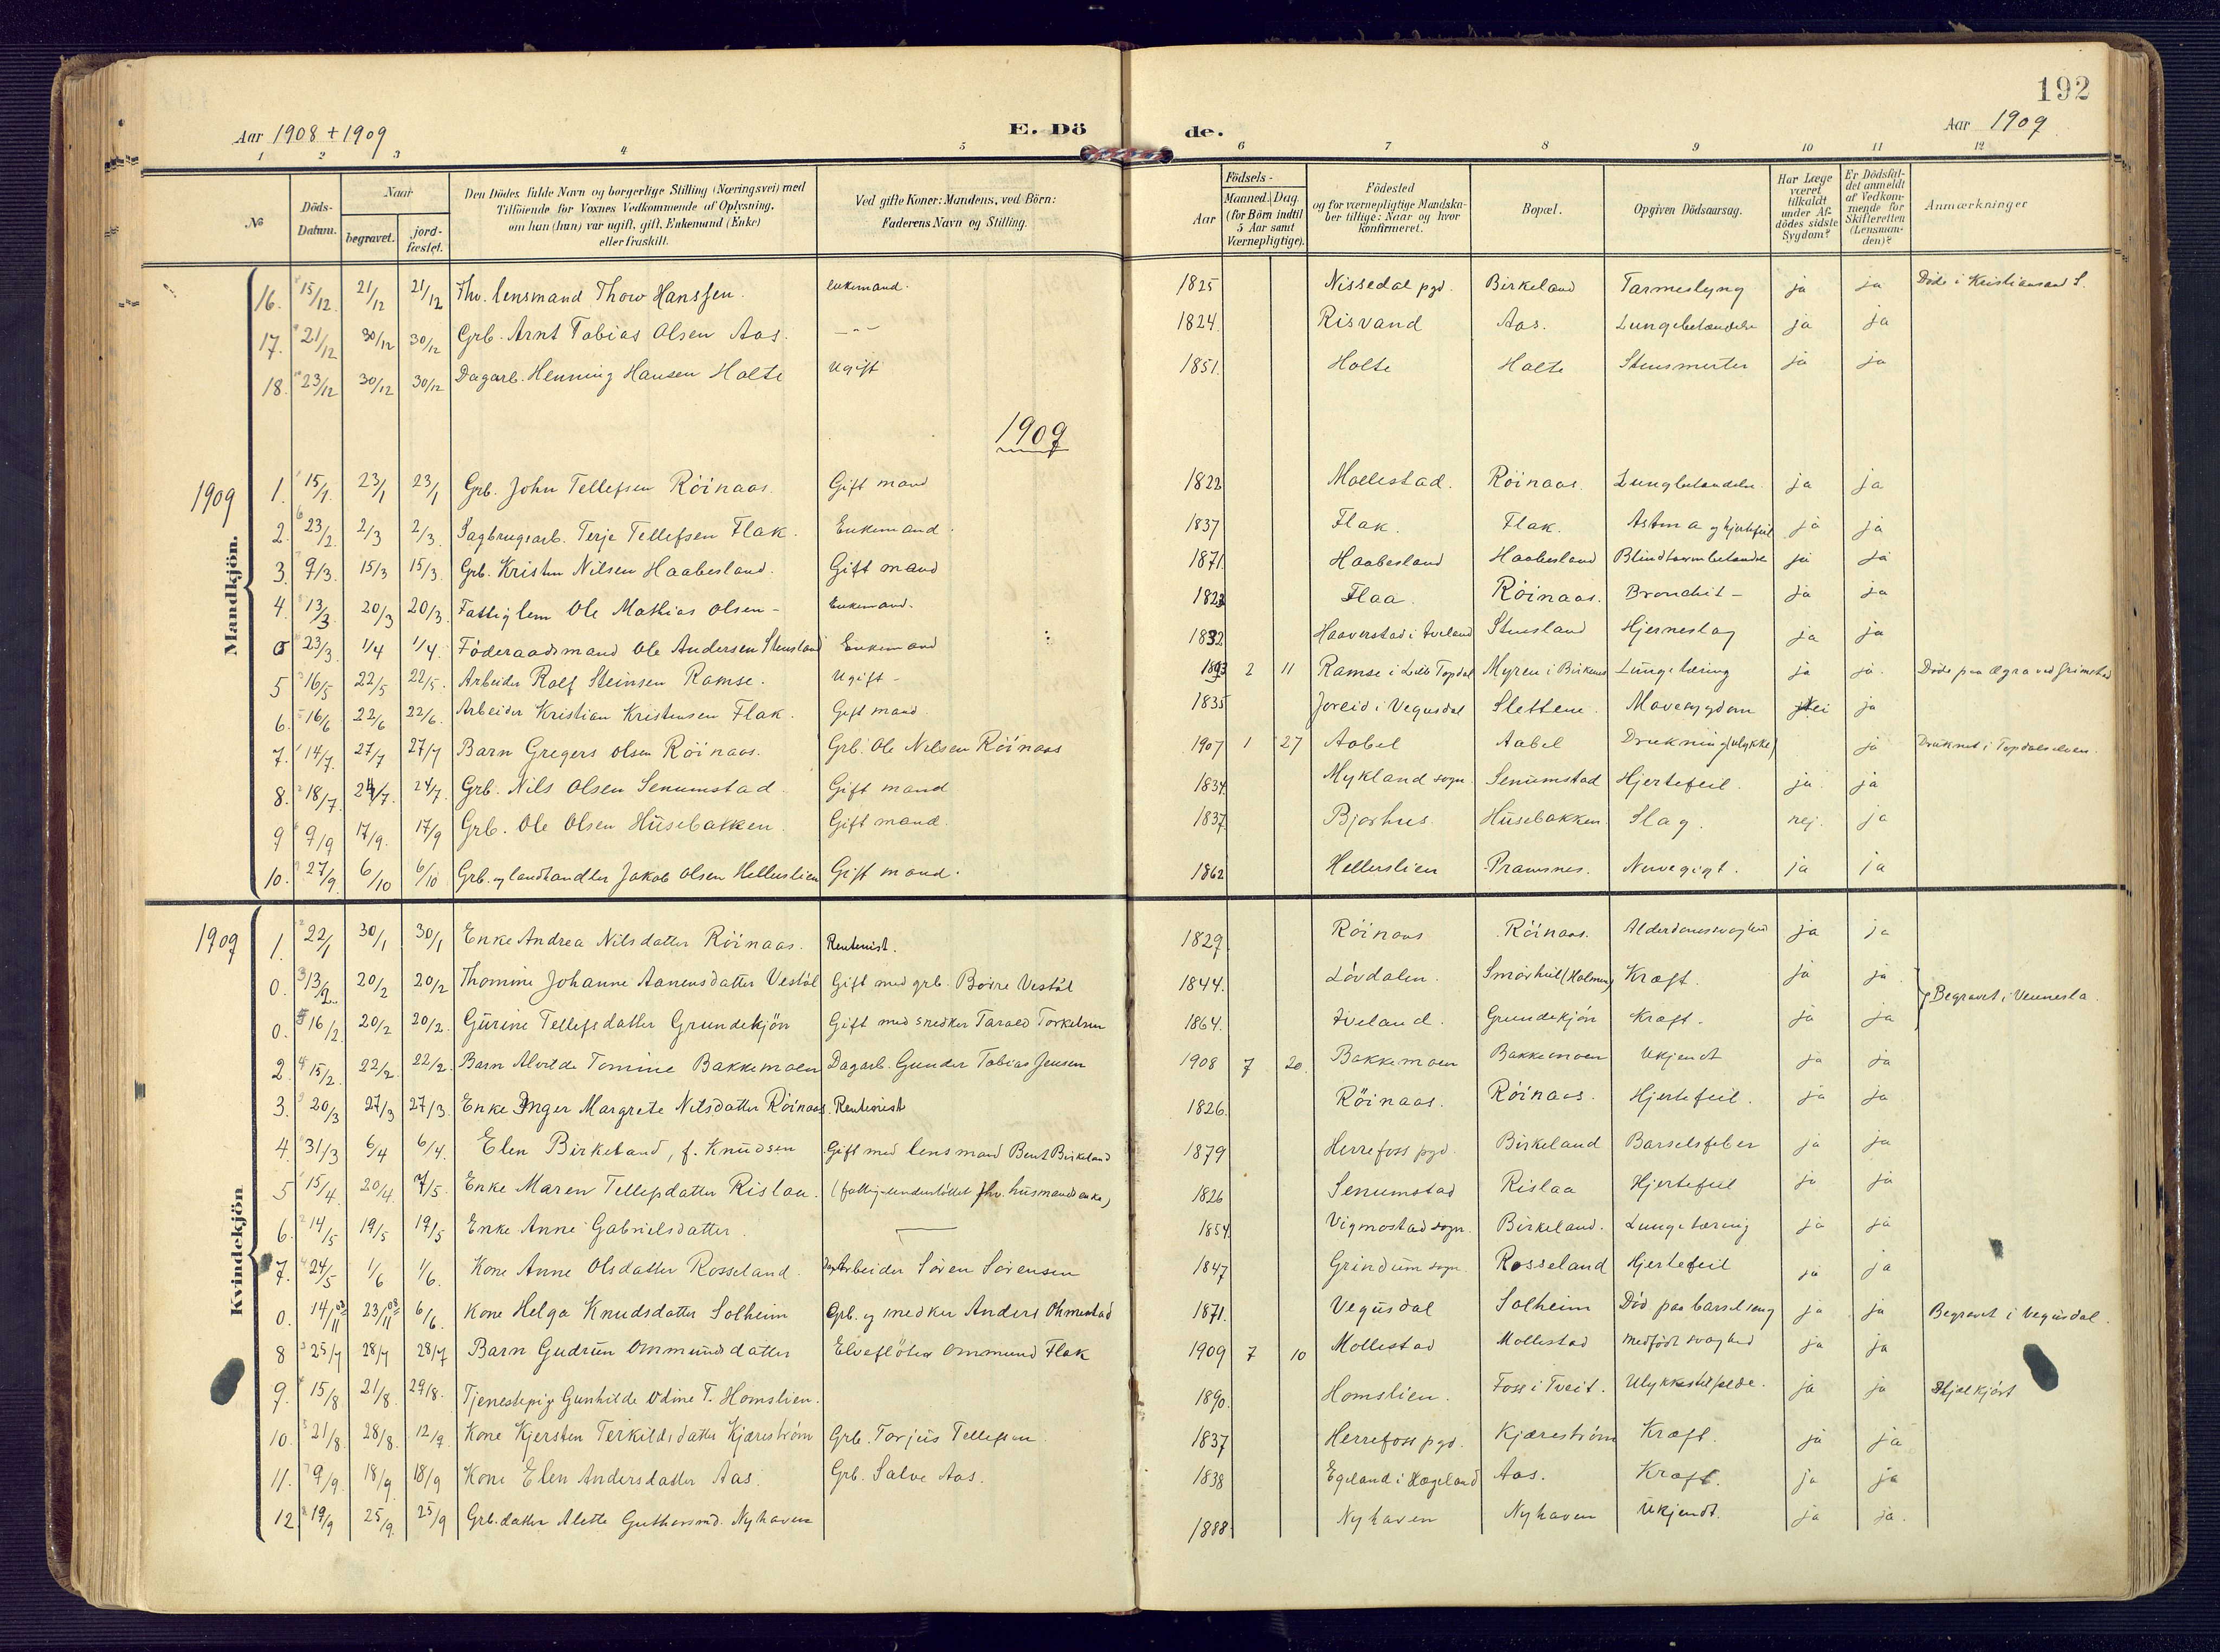 192
Aar 1908 + 1909 E. Dö de. Aar 1909
1 2 3 4 5 6 7 8 9 10 11 12
No Döds-Datum. Naar begravet. jord-fæstet. Den Dödes fulde Navn og borgerlige Stilling (Næringsvei) med Tilföiende for Voxnes Vedkommende af Oplysning, om han (hun) var ugift, gift, Enkemand (Enke) eller fraskilt. Ved gifte Koner: Mandens, ved Börn: Faderens Navn og Stilling. Födsels- Aar Maaned. Dag. (for Börn indtil 5 Aar samt Værnepligtige). Födested og for værnepligtige Mandska-ber tillige: Naar og hvor konfirmeret. Bopæl. Opgiven Dödsaarsag. Har Læge været tilkaldt under Af-dödes sidste Sygdom? Er Dödsfal-det anmeldt af Vedkom-mende for Skifteretten (Lensman-den)? Anmærkninger
Mandkjön.
16. 15/12 21/12 21/12 Fhv. lensmand Thow Hanssen. enkemand. 1825 Nissedal pgd. Birkeland Tarmeslyng ja ja Døde i Kristiansand S.
17. 21/12 30/12 30/12 Grb. Arnt Tobias Olsen Aas. —"— 1824. Risvand Aas. Lungebetændelse ja ja
18. 23/12 30/12 30/12 Dagarb. Henning Hansen Holte Ugift 1851. Holte Holte Stensmerter ja ja
1909
1909 1. 15/1. 23/1 23/1 Grb. John Tellefsen Röinaas. Gift mand 1822 Mollestad. Röinaas. Lungbetændelse ja ja
2. 23/2. 2/3 2/3. Sagbrugsarb. Terje Tellefsen Flak. Enkemand. 1837 Flak. Flak. Astma og hjertefeil ja ja
3. 9/3. 15/3 15/3. Grb. Kristen Nilsen Haabesland. Gift mand 1871. Haabesland Haabesland Blindtarmbetændelse ja ja
4. 13/3 20/3 20/3. Fattiglem Ole Mathias Olsen - Enkemand. 1823 Flaa. Röinaas. Bronchit - ja ja
0 23/3. 1/4 1/4. Föderaadsmand Ole Andersen Stensland Enkemand 1832 Haaverstad i Iveland Stensland Hjerneslag ja ja
5 16/5 22/5 22/5. Arbeider Rolf Steinsen Ramse. Ugift - 1893 2 11 Ramse i Lille Topdal Myren i Birkenes Lungetæring ja ja. Døde paa Ægra ved Grimstad
6. 16/6 22/6 22/6. Arbeider Kristian Kristensen Flak. Gift mand. 1835 Joreid i Vegusdal Slettene. Mavesygdom nei ja
7. 14/7. 27/7 27/7 Barn Gregers Olsen Röinaas. Grb. Ole Nilsen Röinaas 1907 1 27 Aabel Aabel Drukning (ulykke) ja Druknet i Topdalselven.
8. 18/7. 24/7. 24/7. Grb. Nils Olsen Senumstad. Gift mand 1834. Mykland sogn. Senumstad Hjertefeil. ja. ja
9 9/9 17/9. 17/9 Grb. Ole Olsen Husebakken. Gift mand. 1837. Bjorhus. Husebakken. Slag. nej. ja
10. 27/9. 6/10 6/10 Grb. og landhandler Jakob Olsen Hellerslien Gift mand. 1862 Hellerslien Pramsnes. Nervegigt. ja ja
Kvindekjön
1909 1. 22/1 30/1 30/1 Enke Andrea Nilsdatter Röinaas. Rentenist. 1829 Röinaas Röinaas. Alderdomssvaghed ja ja
0. 13/2. 20/2 20/2 Thomine Johanne Aanensdatter Vestöl Gift med grb. Börre Vestöl 1844. Lövdalen. Smörhul (Holmen) Kræft. ja ja. Begravet i Vennesla.
0. 16/2. 20/2 20/2. Gurine Tellefsdatter Grundekjön Gift med snedker Tarald Torkelsen 1864. Iveland. Grundekjön Kræft. ja ja
2. 15/2. 22/2. 22/2. Barn Alvilde Tomine Bakkemoen Dagarb. Gunder Tobias Jensen 1908 7 20. Bakkemoen Bakkemoen Ukjendt ja ja
3. 20/3 27/3 27/3. Enke Inger Margrete Nilsdatter Röinaas. Rentenist 1826. Röinaas. Röinaas. Hjertefeil. ja ja
4. 31/3 6/4 6/4. Elen Birkeland, f. Knudsen Gift med lensmand Bent Birkeland 1879 Herrefoss pgd. Birkeland Barselsfeber ja ja
5 15/4. 20/4. 7/5. Enke Maren Tellefsdatter Rislaa. (fattig-understöttet fhv. husmands enke) 1826 Senumstad Rislaa Hjertefeil ja ja
6. 14/5 19/5 19/5 Enke Anne Gabrielsdatter. — 1854. Vigmostad sogn. Birkeland. Lungetæring ja ja
7. 24/5 1/6 1/6. Kone Anne Olsdatter Rosseland. Dagarbeider Sören Sörensen 1847 Grindum sogn. Rosseland Hjertefeil ja ja
0. 14/11 08 23/11 08 6/6. Kone Helga Knudsdatter Solheim Grb. og snedker Anders Ohmestad 1871. Vegusdal Solheim Död paa barselseng ja ja Begravet i Vegusdal.
8 25/7 28/7 28/7 Barn Gudrun Ommundsdatter Elveflöter Ommund Flak 1909 7 10 Mollestad Mollestad Medfödt svaghed ja ja
9. 15/8 21/8. 29/8. Tjenestepige Gunhilde Odine T. Homslien. 1890. Homslien. Foss i Tveit. Ulykkestilfælde. ja ja Ihjelkjört
10. 21/8. 28/8. 12/9. Kone Kjersten Terkildsdatter Kjæreström Grb. Torjus Tellefsen. 1837 Herrefoss pgd. Kjæreström Kræft. ja ja
11. 9/9. 18/9. 18/9 Kone Elen Andersdatter Aas. Grb. Salve Aas. 1838 Egeland i Hægeland Aas. Kræft. ja ja
12. 19/9 25/9. 25/9 Grb.datter Alette Guthormsd. Nyhaven 1888. Nyhaven Nyhaven Ukjendt. ja ja.